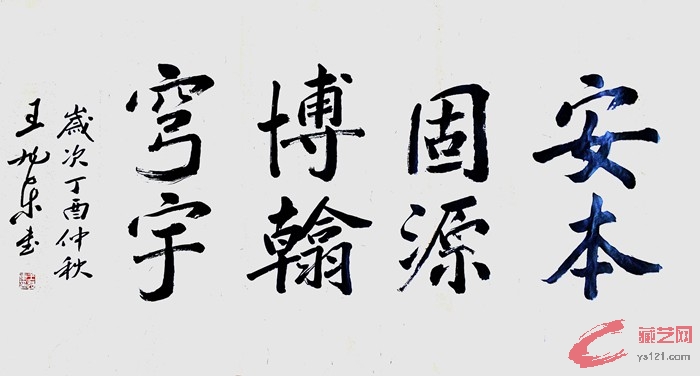 安本
固源
博翰
穹宇
歲次丁酉仲秋
王旭东书
藏艺网
ys121.com